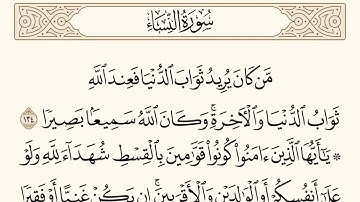 سُورَةُ النِّسَاءِ
مَّن كَانَ يُرِيدُ ثَوَابَ الدُّنْيَا فَعِندَ اللَّهِ
ثَوَابُ الدُّنْيَا وَالْآخِرَةِ ۚ وَكَانَ اللَّهُ سَمِيعًا بَصِيرًا ١٣٤
۞ يَٰٓأَيُّهَا الَّذِينَ ءَامَنُوا كُونُوا قَوَّٰمِينَ بِالْقِسْطِ شُهَدَآءَ لِلَّهِ وَلَوْ
عَلَىٰٓ أَنفُسِكُمْ أَوِ الْوَٰلِدَيْنِ وَالْأَقْرَبِينَ ۚ إِن يَكُنْ غَنِيًّا أَوْ فَقِيرًا